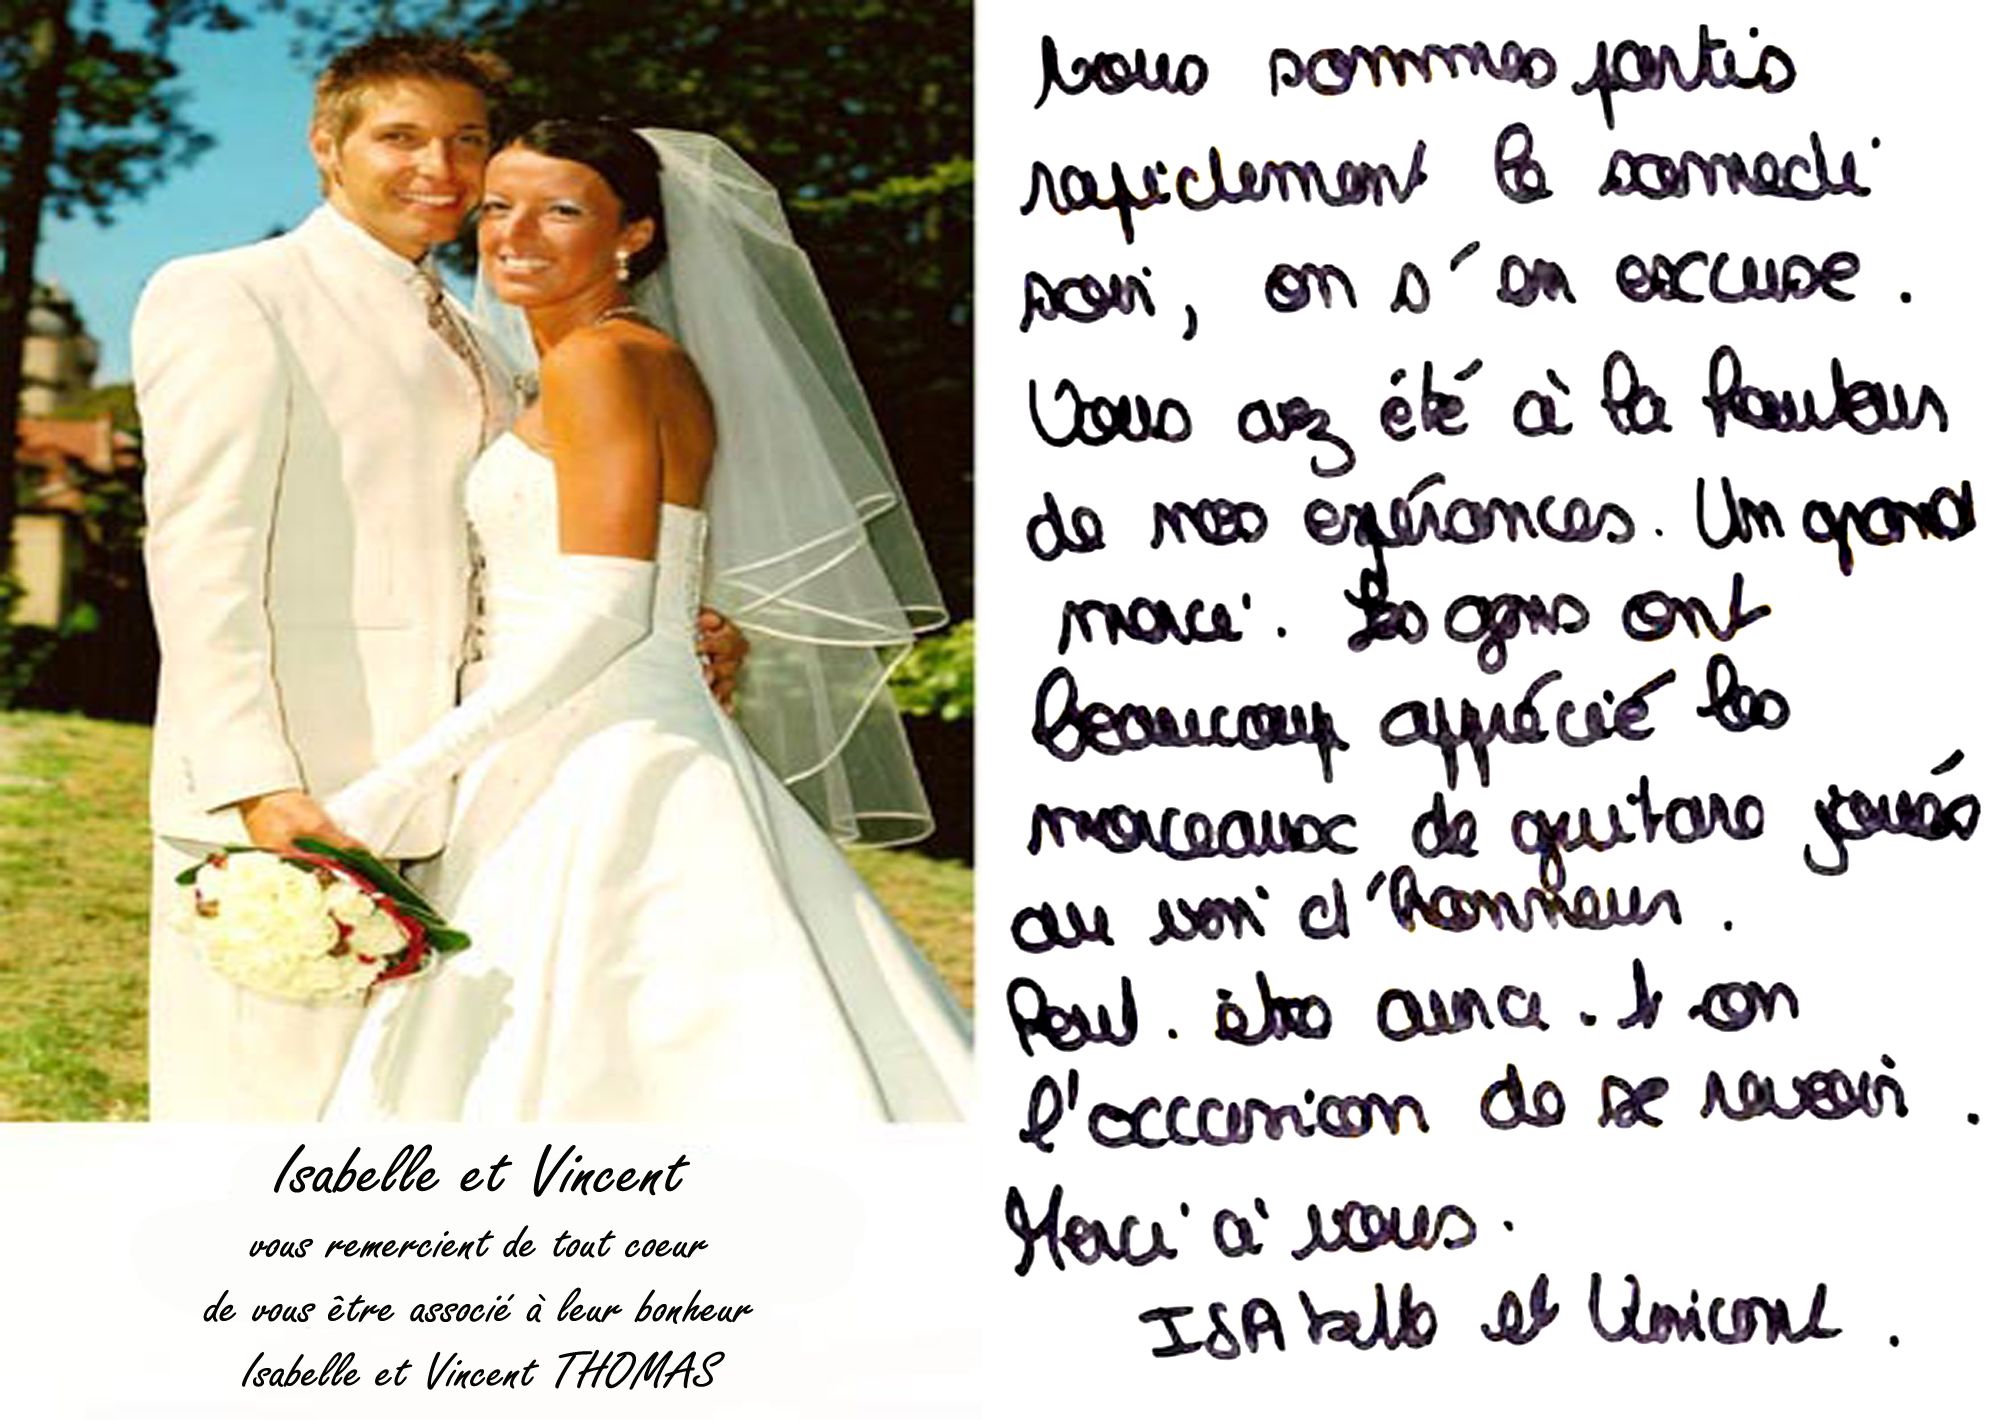 Isabelle et Vincent
vous remercient de tout coeur
de vous être associé à leur bonheur
Isabelle et Vincent THOMAS
Nous sommes partis
rapidement le samedi
soir, on s'en excuse.
Vous avez été à la hauteur
de nos espérances. Un grand
merci. Les gens ont
beaucoup apprécié les
morceaux de guitare joués
au vin d'honneur.
Peut.être aura.t.on
l'occasion de se revoir.
Merci à vous.
ISAbelle et Vincent.